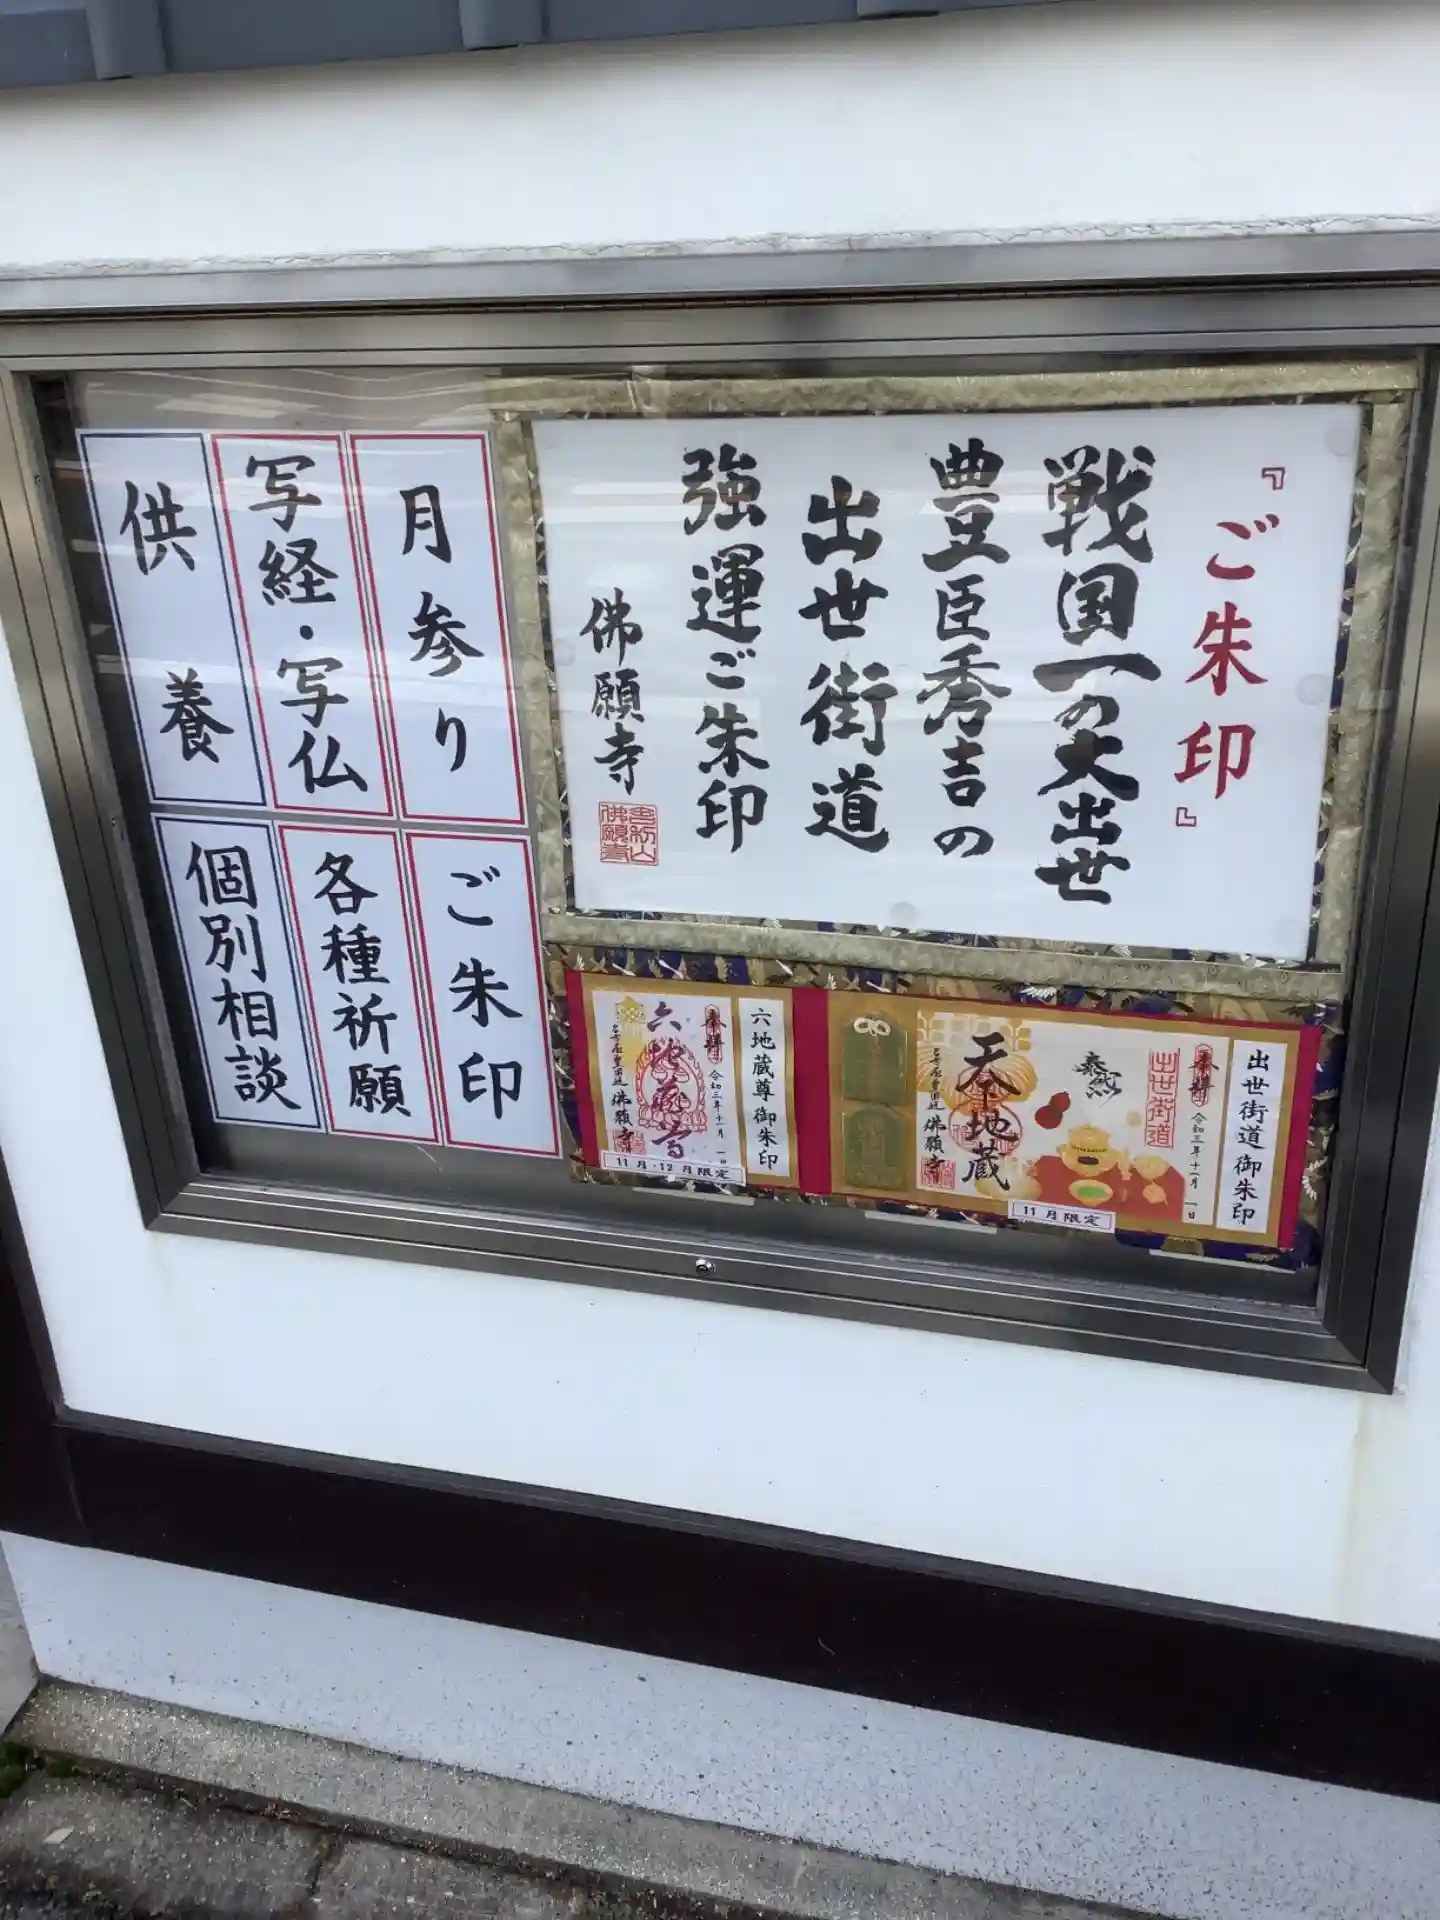 『ご朱印』
戦国一の大出世
豊臣秀吉の
出世街道
強運ご朱印
佛願寺
月参り
写経・写仏
供養
ご朱印
各種祈願
個別相談
出世街道御朱印
奉拝
令和三年十一月一日
出世街道
天下地蔵
佛願寺
11月限定
六地蔵尊御朱印
奉拝
令和三年十一月一日
六地蔵尊
佛願寺
11月・12月限定